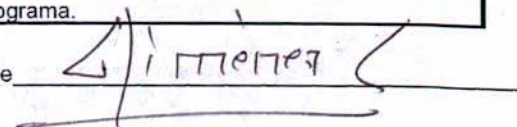 ograma.
e Jimenez